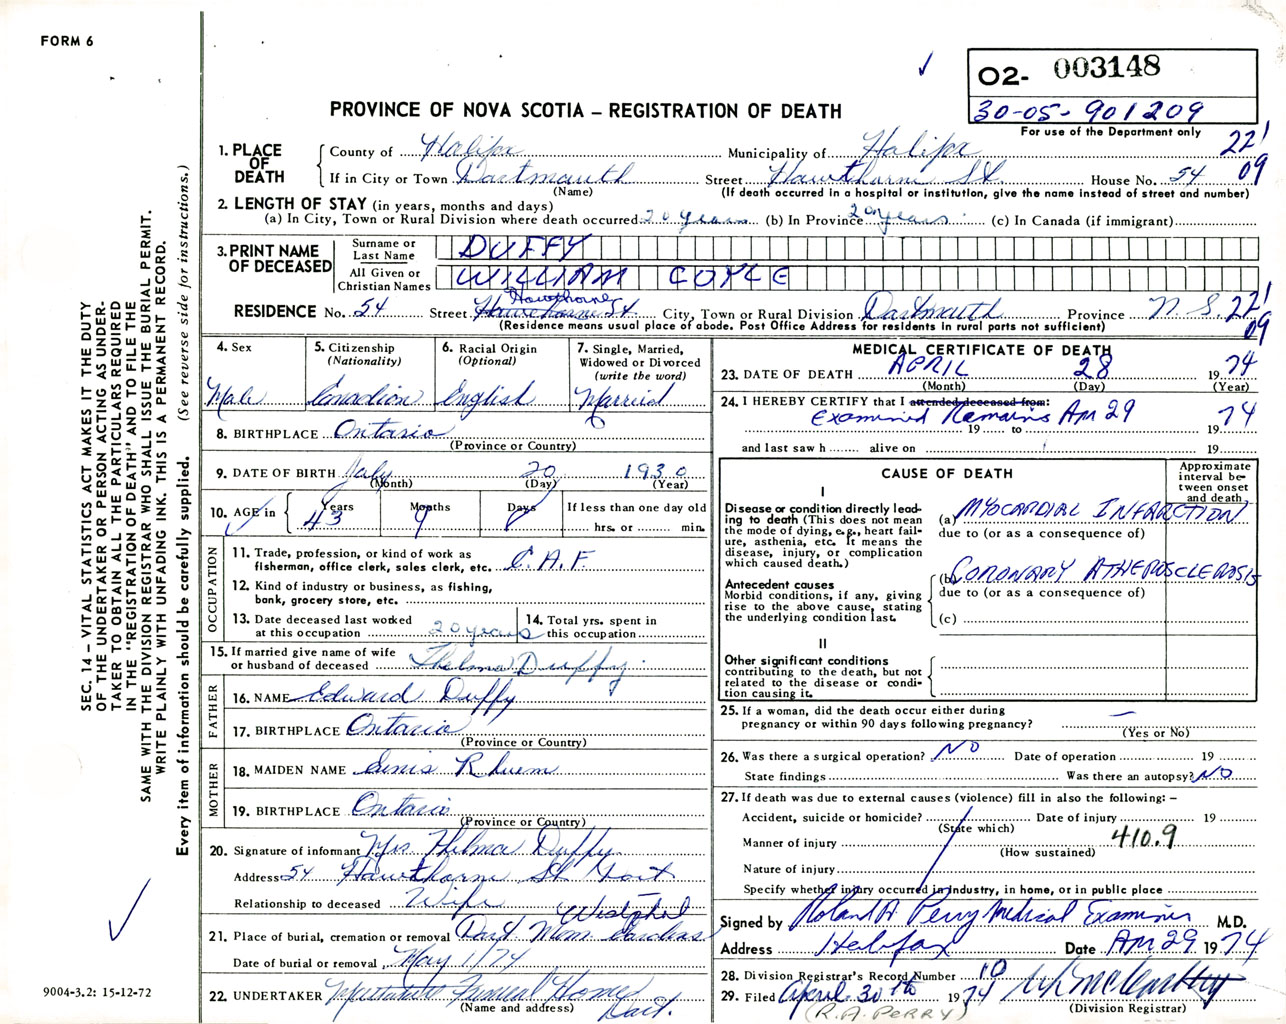 FORM 6
O2- 003148
30-05-901209
For use of the Department only
PROVINCE OF NOVA SCOTIA – REGISTRATION OF DEATH
22'
09
1. PLACE OF DEATH
County of Halifax Municipality of Halifax
If in City or Town Dartmouth Street Hawthorne St. House No. 54
(Name) (If death occurred in a hospital or institution, give the name instead of street and number)
2. LENGTH OF STAY (in years, months and days)
(a) In City, Town or Rural Division where death occurred 20 years (b) In Province 20 years (c) In Canada (if immigrant)
3. PRINT NAME OF DECEASED
Surname or Last Name DUFFY
All Given or Christian Names WILLIAM COYLE
Hawthorne
RESIDENCE No. 54 Street Hawthorne St. City, Town or Rural Division Dartmouth Province N.S. 22'
09
(Residence means usual place of abode. Post Office Address for residents in rural parts not sufficient)
4. Sex
Male
5. Citizenship
(Nationality)
Canadian
6. Racial Origin
(Optional)
English
7. Single, Married,
Widowed or Divorced
(write the word)
Married
8. BIRTHPLACE Ontario
(Province or Country)
9. DATE OF BIRTH July 20 1930
(Month) (Day) (Year)
10. AGE in Years Months Days If less than one day old
43 9 8 hrs. or min.
OCCUPATION
11. Trade, profession, or kind of work as
fisherman, office clerk, sales clerk, etc. C.A.F.
12. Kind of industry or business, as fishing,
bank, grocery store, etc.
13. Date deceased last worked
at this occupation 20 years
14. Total yrs. spent in
this occupation
15. If married give name of wife
or husband of deceased Thelma Duffy
FATHER
16. NAME Edward Duffy
17. BIRTHPLACE Ontario
(Province or Country)
MOTHER
18. MAIDEN NAME
19. BIRTHPLACE Ontario
(Province or Country)
20. Signature of informant Mrs Thelma Duffy
Address 54 Hawthorne St Dart
Relationship to deceased Wife
Westphal
21. Place of burial, cremation or removal Dart Mem Gardens
Date of burial or removal May 1/74
22. UNDERTAKER Funeral Home
(Name and address) Dart.
MEDICAL CERTIFICATE OF DEATH
23. DATE OF DEATH APRIL 28 1974
(Month) (Day) (Year)
24. I HEREBY CERTIFY that I attended deceased from:
Examined Remains Apr 29 74
19 to 19
and last saw h alive on 19
CAUSE OF DEATH
Approximate
interval be-
tween onset
and death
I
Disease or condition directly lead-
ing to death (This does not mean
the mode of dying, e.g., heart fail-
ure, asthenia, etc. It means the
disease, injury, or complication
which caused death.)
(a) MYOCARDIAL INFARCTION
due to (or as a consequence of)
Antecedent causes
Morbid conditions, if any, giving
rise to the above cause, stating
the underlying condition last.
(b) CORONARY ATHEROSCLEROSIS
due to (or as a consequence of)
(c)
II
Other significant conditions
contributing to the death, but not
related to the disease or condi-
tion causing it.
25. If a woman, did the death occur either during
pregnancy or within 90 days following pregnancy? —
(Yes or No)
26. Was there a surgical operation? NO Date of operation 19
State findings Was there an autopsy? NO
27. If death was due to external causes (violence) fill in also the following: –
Accident, suicide or homicide? Date of injury 19
(State which)
Manner of injury 410.9
(How sustained)
Nature of injury
Specify whether injury occurred in industry, in home, or in public place
Signed by Roland A. Perry Medical Examiner M.D.
Address Halifax Date Apr 29 1974
28. Division Registrar's Record Number 10
29. Filed April 30th 1974
(Division Registrar)
(R.A. PERRY)
SEC. 14 – VITAL STATISTICS ACT MAKES IT THE DUTY
OF THE UNDERTAKER OR PERSON ACTING AS UNDER-
TAKER TO OBTAIN ALL THE PARTICULARS REQUIRED
IN THE "REGISTRATION OF DEATH" AND TO FILE THE
SAME WITH THE DIVISION REGISTRAR WHO SHALL ISSUE THE BURIAL PERMIT.
WRITE PLAINLY WITH UNFADING INK. THIS IS A PERMANENT RECORD.
Every item of information should be carefully supplied. (See reverse side for instructions.)
9004-3.2: 15-12-72